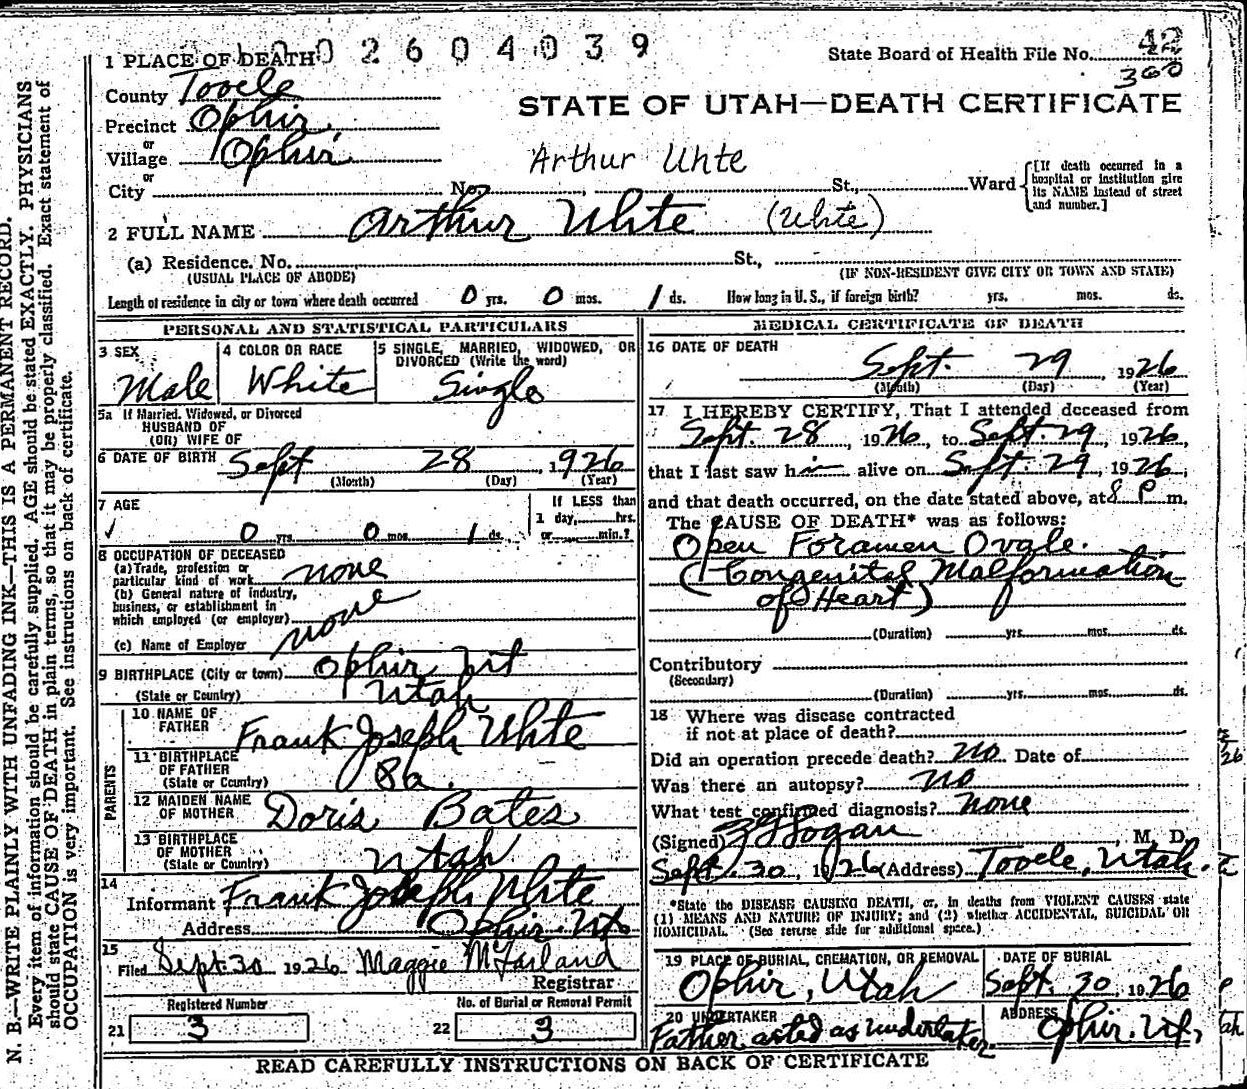 1 PLACE OF DEATH
02604039
State Board of Health File No. 42
360
County Tooele
STATE OF UTAH—DEATH CERTIFICATE
Precinct Ophir
or
Village Ophir
or
Arthur Uhte
City No. St., Ward
[If death occurred in a
hospital or institution give
its NAME instead of street
and number.]
2 FULL NAME Arthur Uhte (White)
(a) Residence. No. St.,
(USUAL PLACE OF ABODE) (IF NON-RESIDENT GIVE CITY OR TOWN AND STATE)
Length of residence in city or town where death occurred 0 yrs. 0 mos. 1 ds. How long in U. S., if foreign birth? yrs. mos. ds.
PERSONAL AND STATISTICAL PARTICULARS
3 SEX
Male
4 COLOR OR RACE
White
5 SINGLE, MARRIED, WIDOWED, OR
DIVORCED (Write the word)
Single
5a If Married, Widowed, or Divorced
HUSBAND OF
(OR) WIFE OF
6 DATE OF BIRTH Sept 28, 1926
(Month) (Day) (Year)
7 AGE
0 yrs. 0 mos. 1 ds.
If LESS than
1 day, hrs.
or min.?
8 OCCUPATION OF DECEASED
(a) Trade, profession or
particular kind of work none
(b) General nature of industry,
business, or establishment in
which employed (or employer) none
(c) Name of Employer
9 BIRTHPLACE (City or town) Ophir Ut
(State or Country) Utah
PARENTS
10 NAME OF
FATHER Frank Joseph Uhte
11 BIRTHPLACE
OF FATHER
(State or Country)
12 MAIDEN NAME
OF MOTHER Doris Bates
13 BIRTHPLACE
OF MOTHER
(State or Country) Utah
14
Informant Frank Joseph Uhte
Address Ophir. Ut
15
Filed Sept 30 1926 Maggie McFarland
Registrar
Registered Number
21 3
No. of Burial or Removal Permit
22 3
MEDICAL CERTIFICATE OF DEATH
16 DATE OF DEATH
Sept. 29 1926
(Month) (Day) (Year)
17 I HEREBY CERTIFY, That I attended deceased from
Sept. 28, 1926, to Sept. 29, 1926,
that I last saw him alive on Sept. 29, 1926;
and that death occurred, on the date stated above, at 8 P m.
The CAUSE OF DEATH* was as follows:
Open Foramen Ovale.
(Congenital Malformation
of Heart)
(Duration) yrs. mos. ds.
Contributory
(Secondary)
(Duration) yrs. mos. ds.
18 Where was disease contracted
if not at place of death?
Did an operation precede death? No Date of
Was there an autopsy? no
What test confirmed diagnosis? none
(Signed) Hogan, M. D.
Sept. 30, 1926 (Address) Tooele, Utah.
*State the DISEASE CAUSING DEATH, or, in deaths from VIOLENT CAUSES state
(1) MEANS AND NATURE OF INJURY; and (2) whether ACCIDENTAL, SUICIDAL OR
HOMICIDAL. (See reverse side for additional space.)
19 PLACE OF BURIAL, CREMATION, OR REMOVAL
Ophir, Utah
DATE OF BURIAL
Sept. 30, 1926
20 UNDERTAKER
Father acted as undertaker.
ADDRESS
Ophir. Ut,
READ CAREFULLY INSTRUCTIONS ON BACK OF CERTIFICATE
N. B.—WRITE PLAINLY WITH UNFADING INK—THIS IS A PERMANENT RECORD.
Every item of information should be carefully supplied. AGE should be stated EXACTLY. PHYSICIANS
should state CAUSE OF DEATH in plain terms, so that it may be properly classified. Exact statement of
OCCUPATION is very important. See instructions on back of certificate.